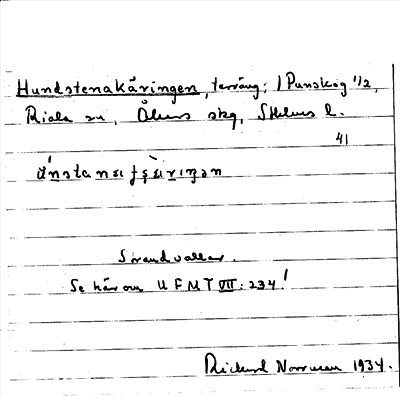 Hundstenakäringen, terräng; 1 Punskog 1/2,
Riala sn, Åkers skg, Sthlms l.
41
Strandvallar.
Se härom UFMT VII: 234!
Rickard Norrman 1934.